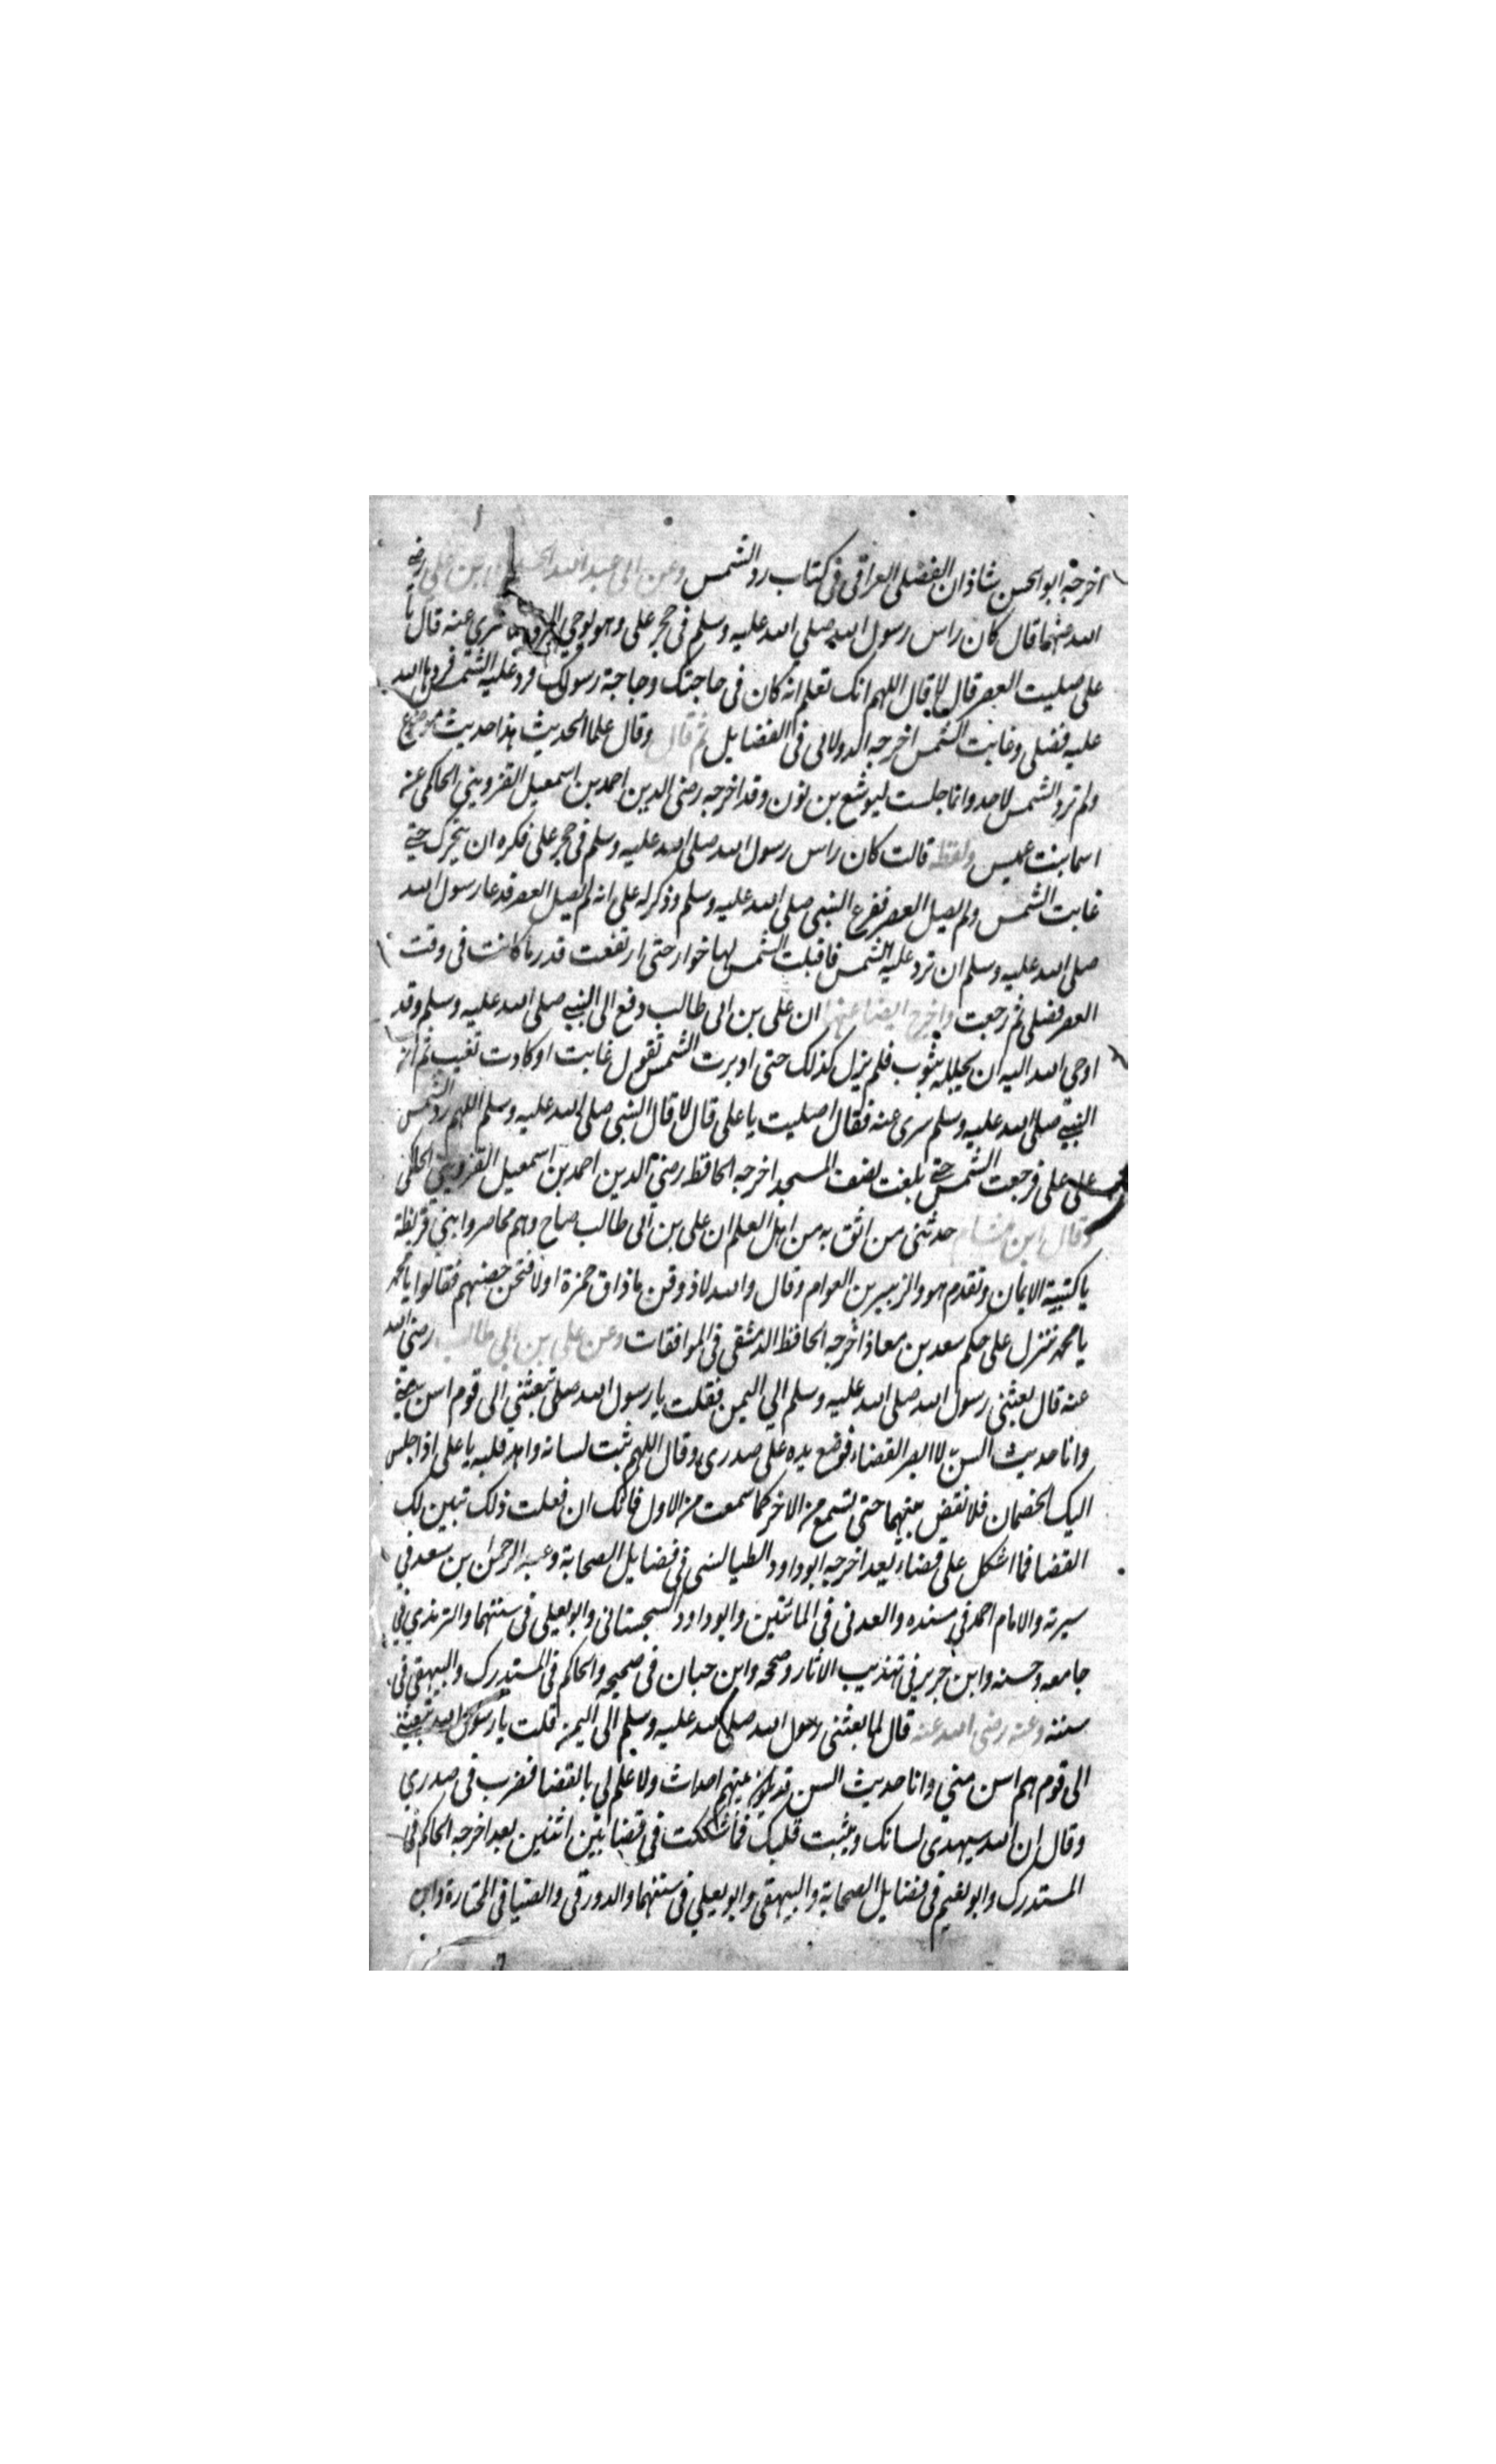 اخرجه ابو الحسن شاذان الفضلى العراقى فى كتاب رد الشمس وعن ابى عبد الله الحسين بن على رضى
الله عنهما قال كان راس رسول الله صلى الله عليه وسلم فى حجر على وهو يوحى اليه فلما سرى عنه قال يا
على صليت العصر قال لا قال اللهم انك تعلم انه كان فى حاجتك وحاجة رسولك فرد عليه الشمس فردها الله
عليه فصلى وغابت الشمس اخرجه الدولابى فى الفضايل ثم قال وقال علما الحديث هذا حديث موضوع
ولم ترد الشمس لاحد وانما حبست ليوشع بن نون وقد اخرجه رضى الدين احمد بن اسمعيل القزوينى الحاكمى عن
اسما بنت عميس ولفظه قالت كان راس رسول الله صلى الله عليه وسلم فى حجر على فكره ان يتحرك حتى
غابت الشمس ولم يصل العصر ففزع النبى صلى الله عليه وسلم وذكر له على انه لم يصل العصر فدعا رسول الله
صلى الله عليه وسلم ان ترد عليه الشمس فاقبلت الشمس لها خوار حتى ارتفعت قدر ما كانت فى وقت
العصر فصلى ثم رجعت واخرج ايضا عنها ان على بن ابى طالب دفع الى النبى صلى الله عليه وسلم وقد
اوحى الله اليه ان يجلله بثوب فلم يزل كذلك حتى ادبرت الشمس تقول غابت او كادت تغيب ثم ان
النبى صلى الله عليه وسلم سرى عنه فقال اصليت يا على قال لا قال النبى صلى الله عليه وسلم اللهم رد الشمس
على على فرجعت الشمس حتى بلغت نصف المسجد اخرجه الحافظ رضى الدين احمد بن اسمعيل القزوينى الحاكمى
وقال ابن هشام حدثنى من اثق به من اهل العلم ان على بن ابى طالب صاح وهم محاصروا بنى قريظة
يا كتيبة الايمان وتقدم هو والزبير بن العوام وقال والله لاذوقن ما ذاق حمزة اولا فتحن حصنهم فقالوا يا محمد
يا محمد ننزل على حكم سعد بن معاذ اخرجه الحافظ الدمشقى فى الموافقات وعن على بن ابى طالب رضى الله
عنه قال بعثنى رسول الله صلى الله عليه وسلم الى اليمن فقلت يا رسول الله صلى تبعثنى الى قوم اسن منى
وانا حديث السن لا ابصر القضاء فوضع يده على صدرى وقال اللهم ثبت لسانه واهد قلبه يا على اذا جلس
اليك الخصمان فلا تقض بينهما حتى تسمع من الاخر كما سمعت من الاول فانك ان فعلت ذلك تبين لك
القضا فما اشكل على قضاء بعد اخرجه ابو داود الطيالسى فى فضايل الصحابة وعبد الرحمن بن سعد فى
سيرته والامام احمد فى مسنده والعدنى فى المائتين وابو داود السجستانى وابو يعلى فى سننهما والترمذى فى
جامعه وحسنه وابن جرير فى تهذيب الاثار وصححه وابن حبان فى صحيحه والحاكم فى المستدرك والبيهقى فى
سننه وعنه رضى الله عنه قال لما بعثنى رسول الله صلى الله عليه وسلم الى اليمن قلت يا رسول الله تبعثنى
الى قوم هم اسن منى وانا حديث السن قد يكون بينهم احداث ولا علم لى بالقضا فضرب فى صدرى
وقال ان الله سيهدى لسانك ويثبت قلبك فما شككت فى قضا بين اثنين بعد اخرجه الحاكم فى
المستدرك وابو نعيم فى فضايل الصحابة والبيهقى وابو يعلى فى سننهما والدورقى والضيا فى المختارة وابن